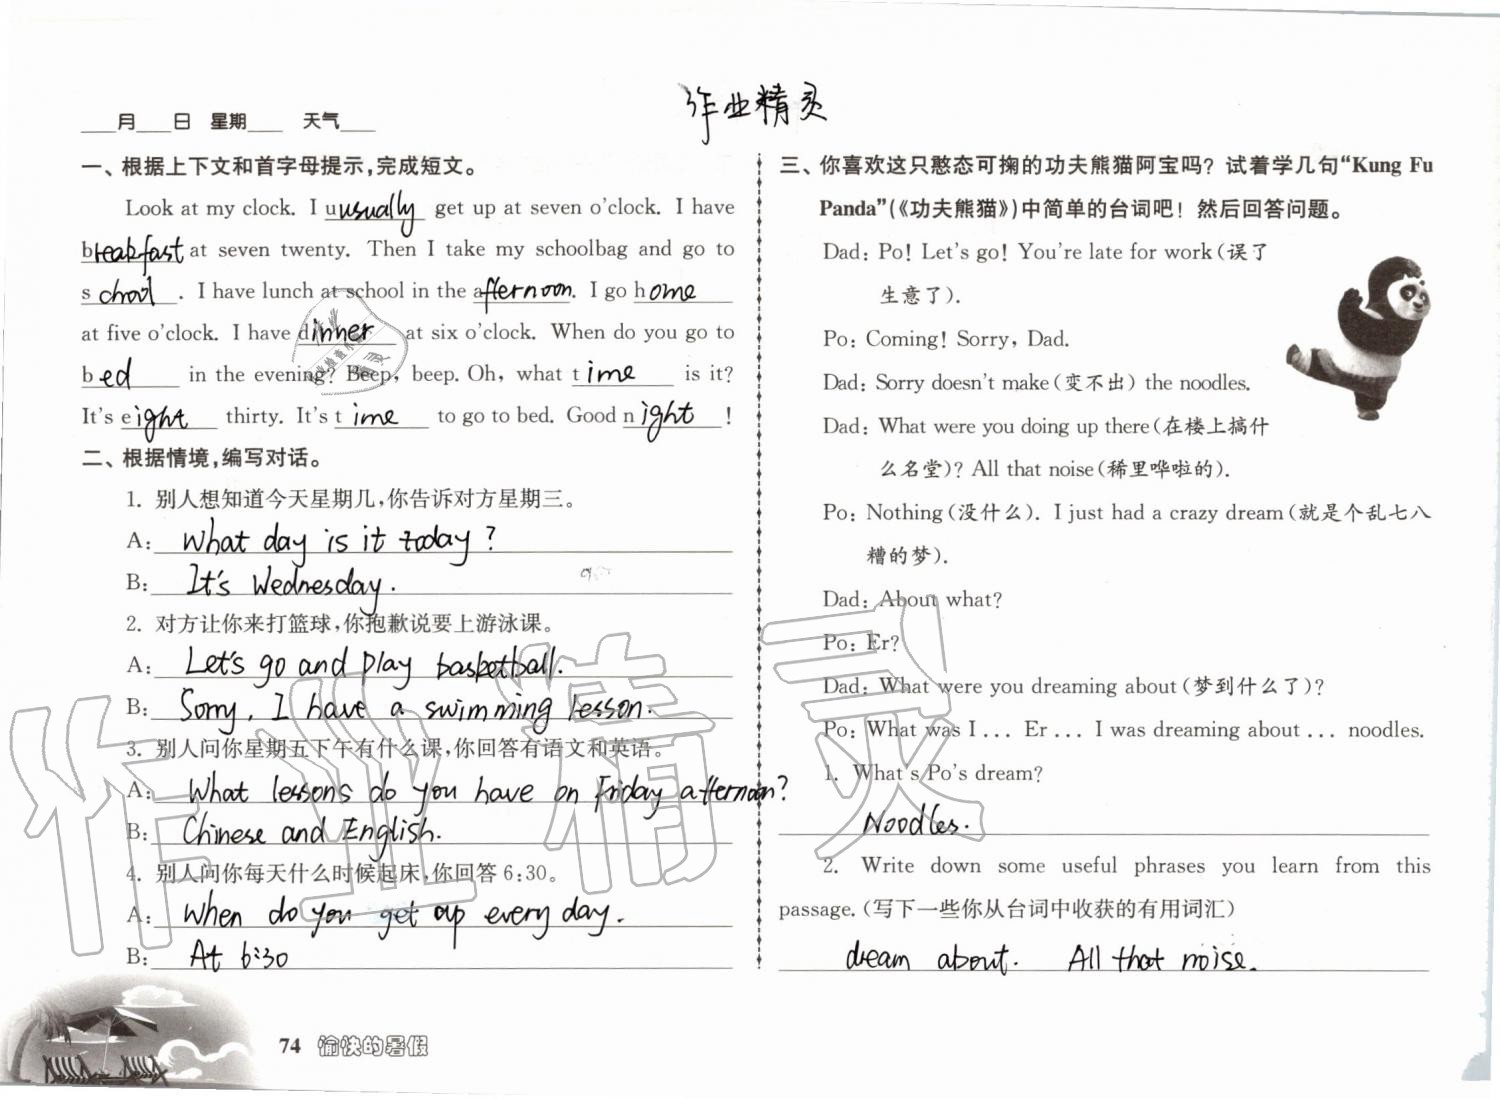 作业精灵
___月___日 星期___ 天气___
一、根据上下文和首字母提示,完成短文。
Look at my clock. I uusually get up at seven o'clock. I have
breakfast at seven twenty. Then I take my schoolbag and go to
school. I have lunch at school in the afternoon. I go home
at five o'clock. I have dinner at six o'clock. When do you go to
bed in the evening? Beep, beep. Oh, what time is it?
It's eight thirty. It's time to go to bed. Good night!
二、根据情境,编写对话。
1. 别人想知道今天星期几,你告诉对方星期三。
A: What day is it today?
B: It's Wednesday.
2. 对方让你来打篮球,你抱歉说要上游泳课。
A: Let's go and play basketball.
B: Sorry, I have a swimming lesson.
3. 别人问你星期五下午有什么课,你回答有语文和英语。
A: What lessons do you have on Friday afternoon?
B: Chinese and English.
4. 别人问你每天什么时候起床,你回答 6:30。
A: When do you get up every day.
B: At 6:30
74 愉快的暑假
三、你喜欢这只憨态可掬的功夫熊猫阿宝吗? 试着学几句“Kung Fu
Panda”(《功夫熊猫》)中简单的台词吧! 然后回答问题。
Dad: Po! Let's go! You're late for work(误了
生意了).
Po: Coming! Sorry, Dad.
Dad: Sorry doesn't make(变不出) the noodles.
Dad: What were you doing up there(在楼上搞什
么名堂)? All that noise(稀里哗啦的).
Po: Nothing(没什么). I just had a crazy dream(就是个乱七八
糟的梦).
Dad: About what?
Po: Er?
Dad: What were you dreaming about(梦到什么了)?
Po: What was I... Er... I was dreaming about... noodles.
1. What's Po's dream?
Noodles.
2. Write down some useful phrases you learn from this
passage.(写下一些你从台词中收获的有用词汇)
dream about. All that noise.
作业精灵